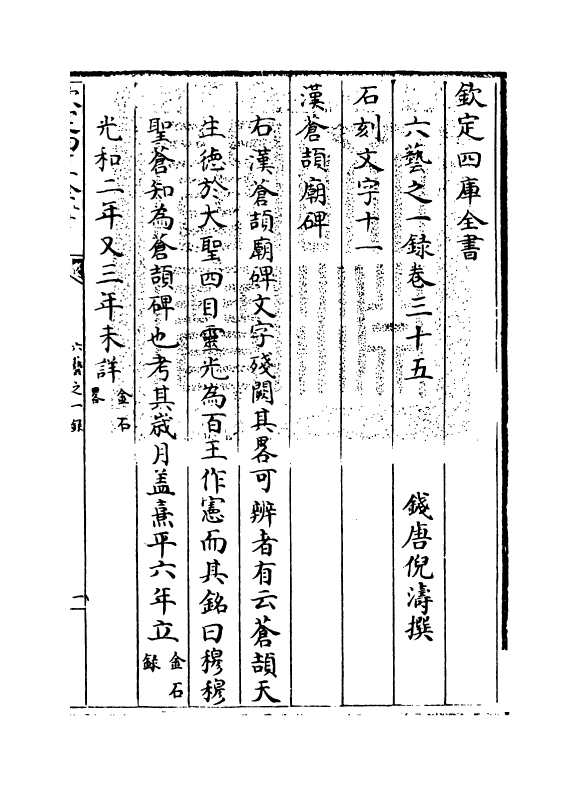 欽定四庫全書
六藝之一録卷三十五
錢唐倪濤撰
石刻文字十一
漢蒼頡廟碑
右漢蒼頡廟碑文字殘闕其畧可辨者有云蒼頡天
生徳於大聖四目靈光為百王作憲而其銘曰穆穆
聖蒼知為蒼頡碑也考其歳月盖熹平六年立金石
録
光和二年又三年未詳金石
畧
六藝之一録